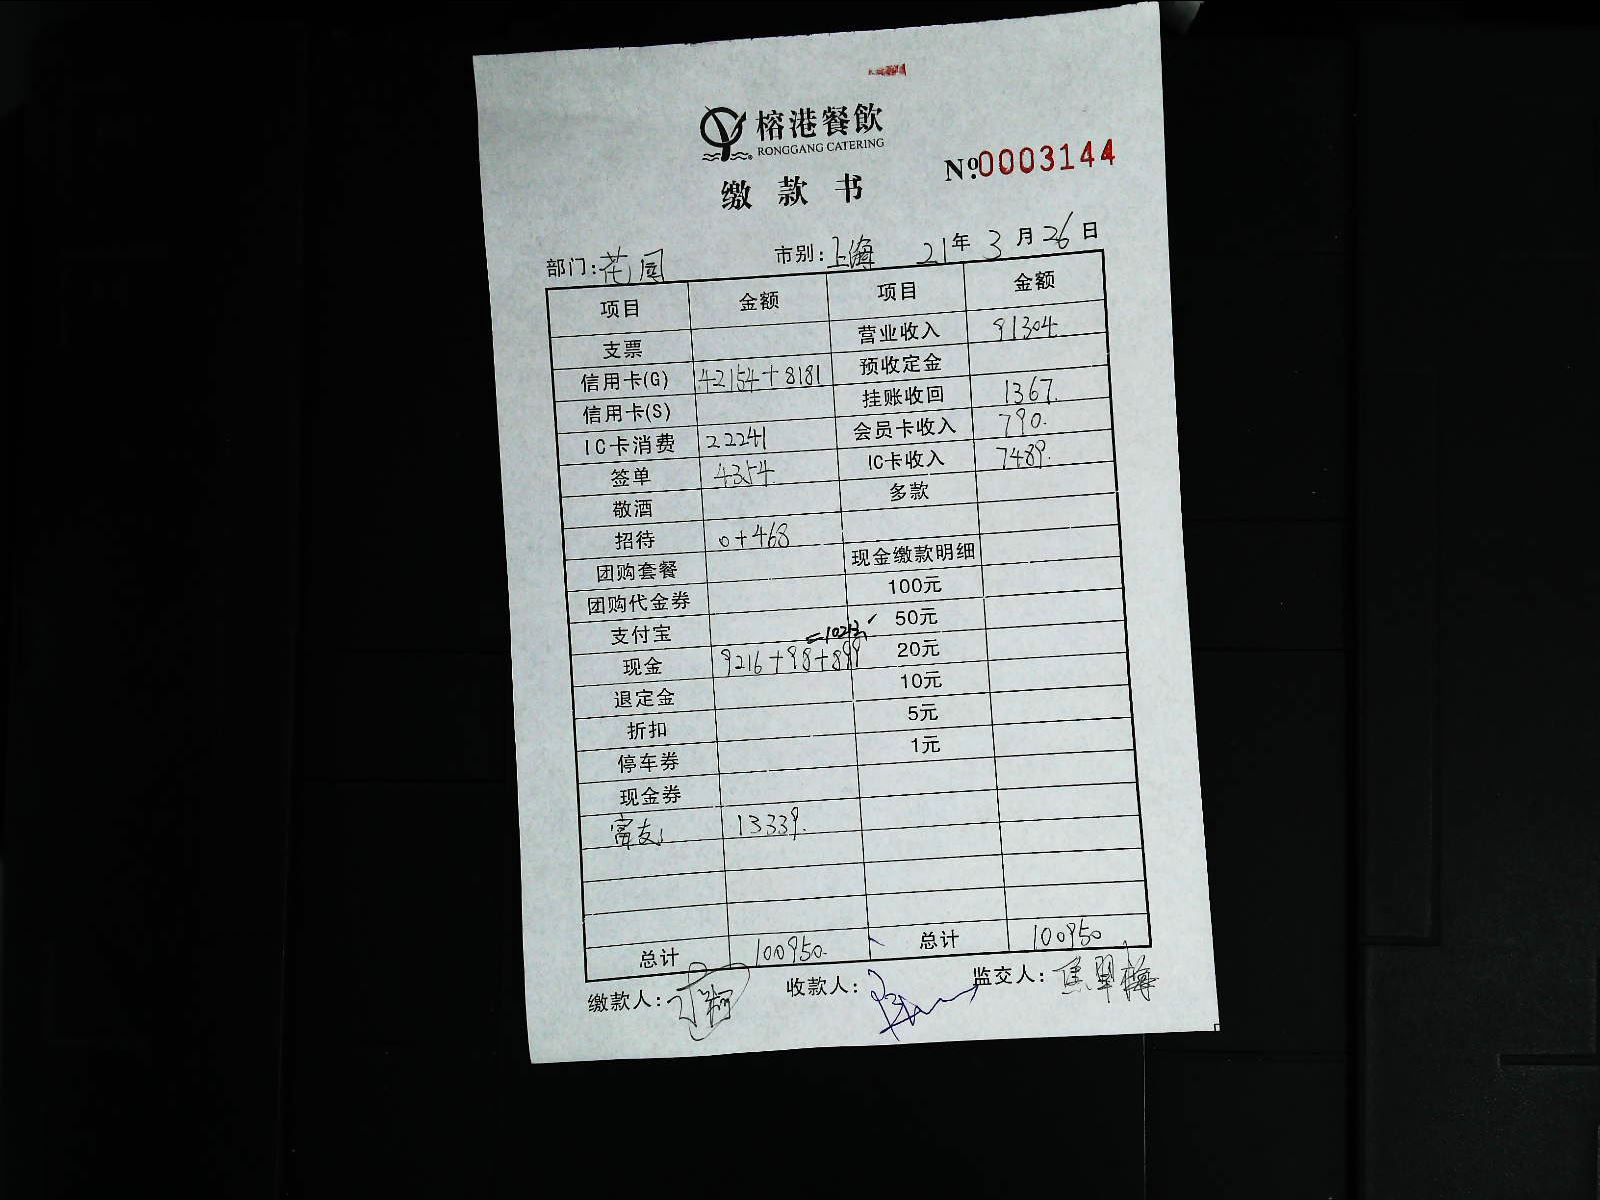 榕港餐飲
RONGGANG CATERING
缴款书
Nº.0003144
部门:花园 市别:上海 21年3月26日
项目 金额 项目 金额
支票 营业收入 91304.
信用卡(G) 42154+8181 预收定金
信用卡(S) 挂账收回 1367.
IC卡消费 22241 会员卡收入 790.
签单 4354. IC卡收入 7489.
敬酒 多款
招待 0+468
团购套餐 现金缴款明细
团购代金券 100元
支付宝 =10213 50元
现金 9216+98+899 20元
退定金 10元
折扣 5元
停车券 1元
现金券
13339.
总计 100950. 总计 100950
缴款人: 收款人: 监交人:焦翠梅